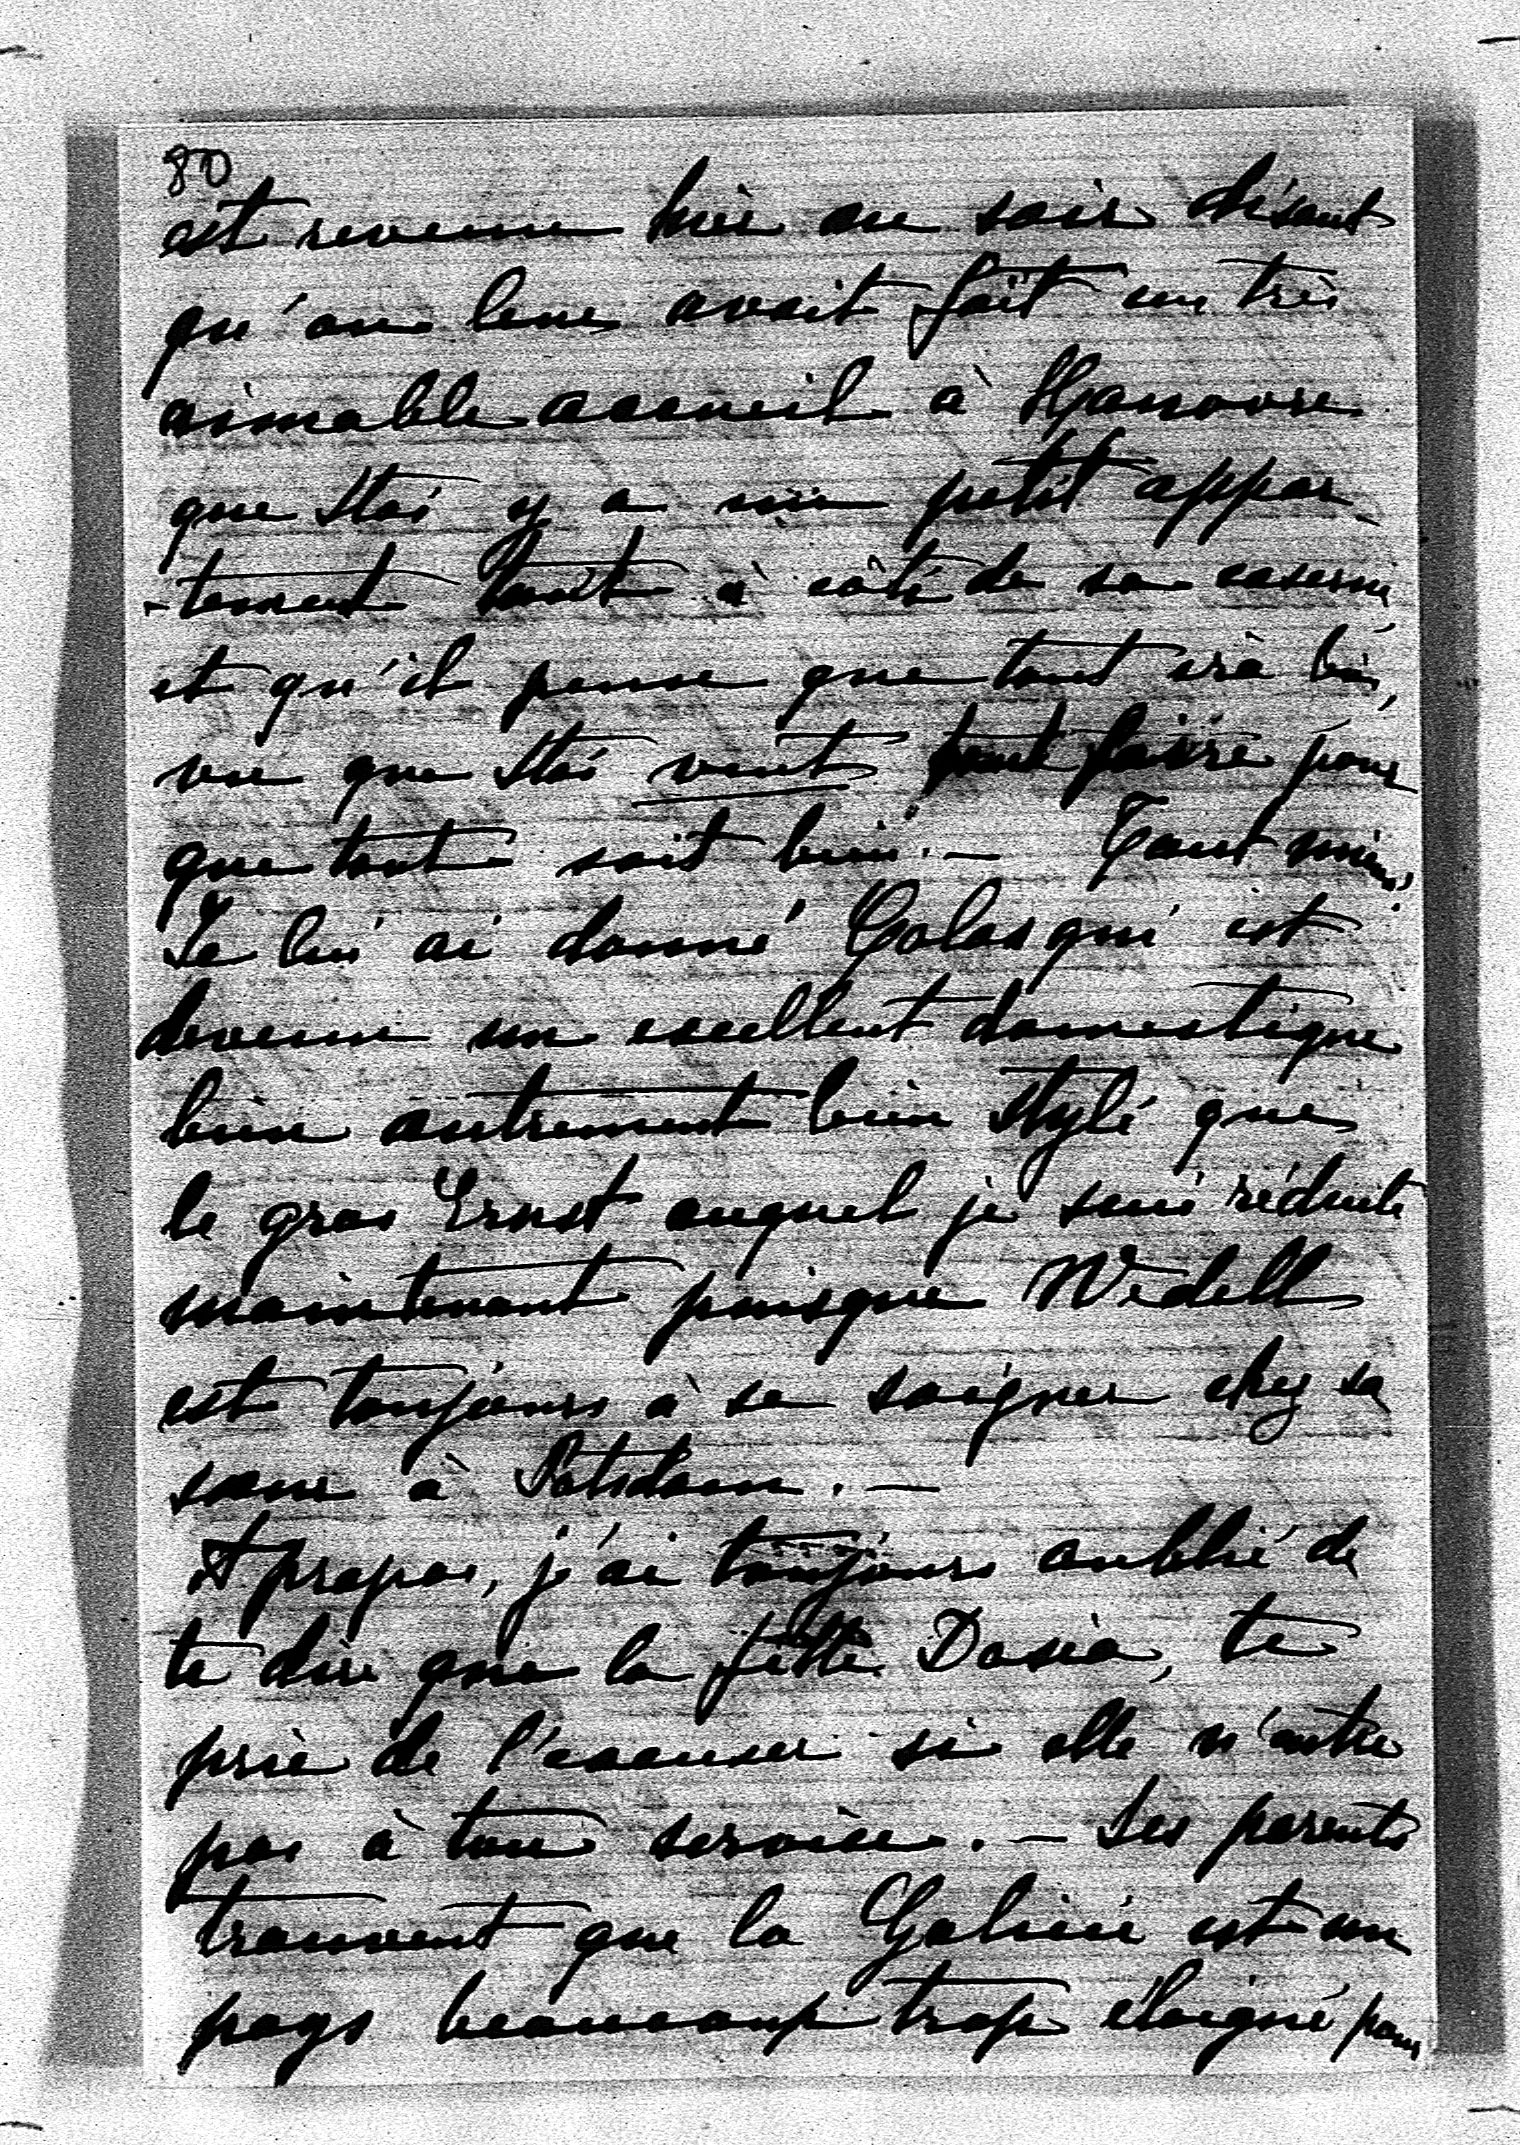 80
est revenu hier au soir disant
qu'on leur avait fait un très
aimable accueil à Hanovre
que Stas y a un petit appar
-tement tout à côté de sa caserne
et qu'il pense que tout ira bien,
vu que Stas veut tout faire pour
que tout soit bien. — Tant mieux,
Je lui ai donné Colas qui est
devenu un excellent domestique
bien autrement bien stylé que
le gros Ernst auquel je suis réduite
maintenant puisque Wedell
est toujours à se soigner chez sa
sœur à Potsdam. —
A propos, j'ai toujours oublié de
te dire que la petite Dasia, te
prie de l'excuser si elle n'entre
pas à ton service. — Ses parents
trouvent que la Galicie est un
pays beaucoup trop éloigné pour